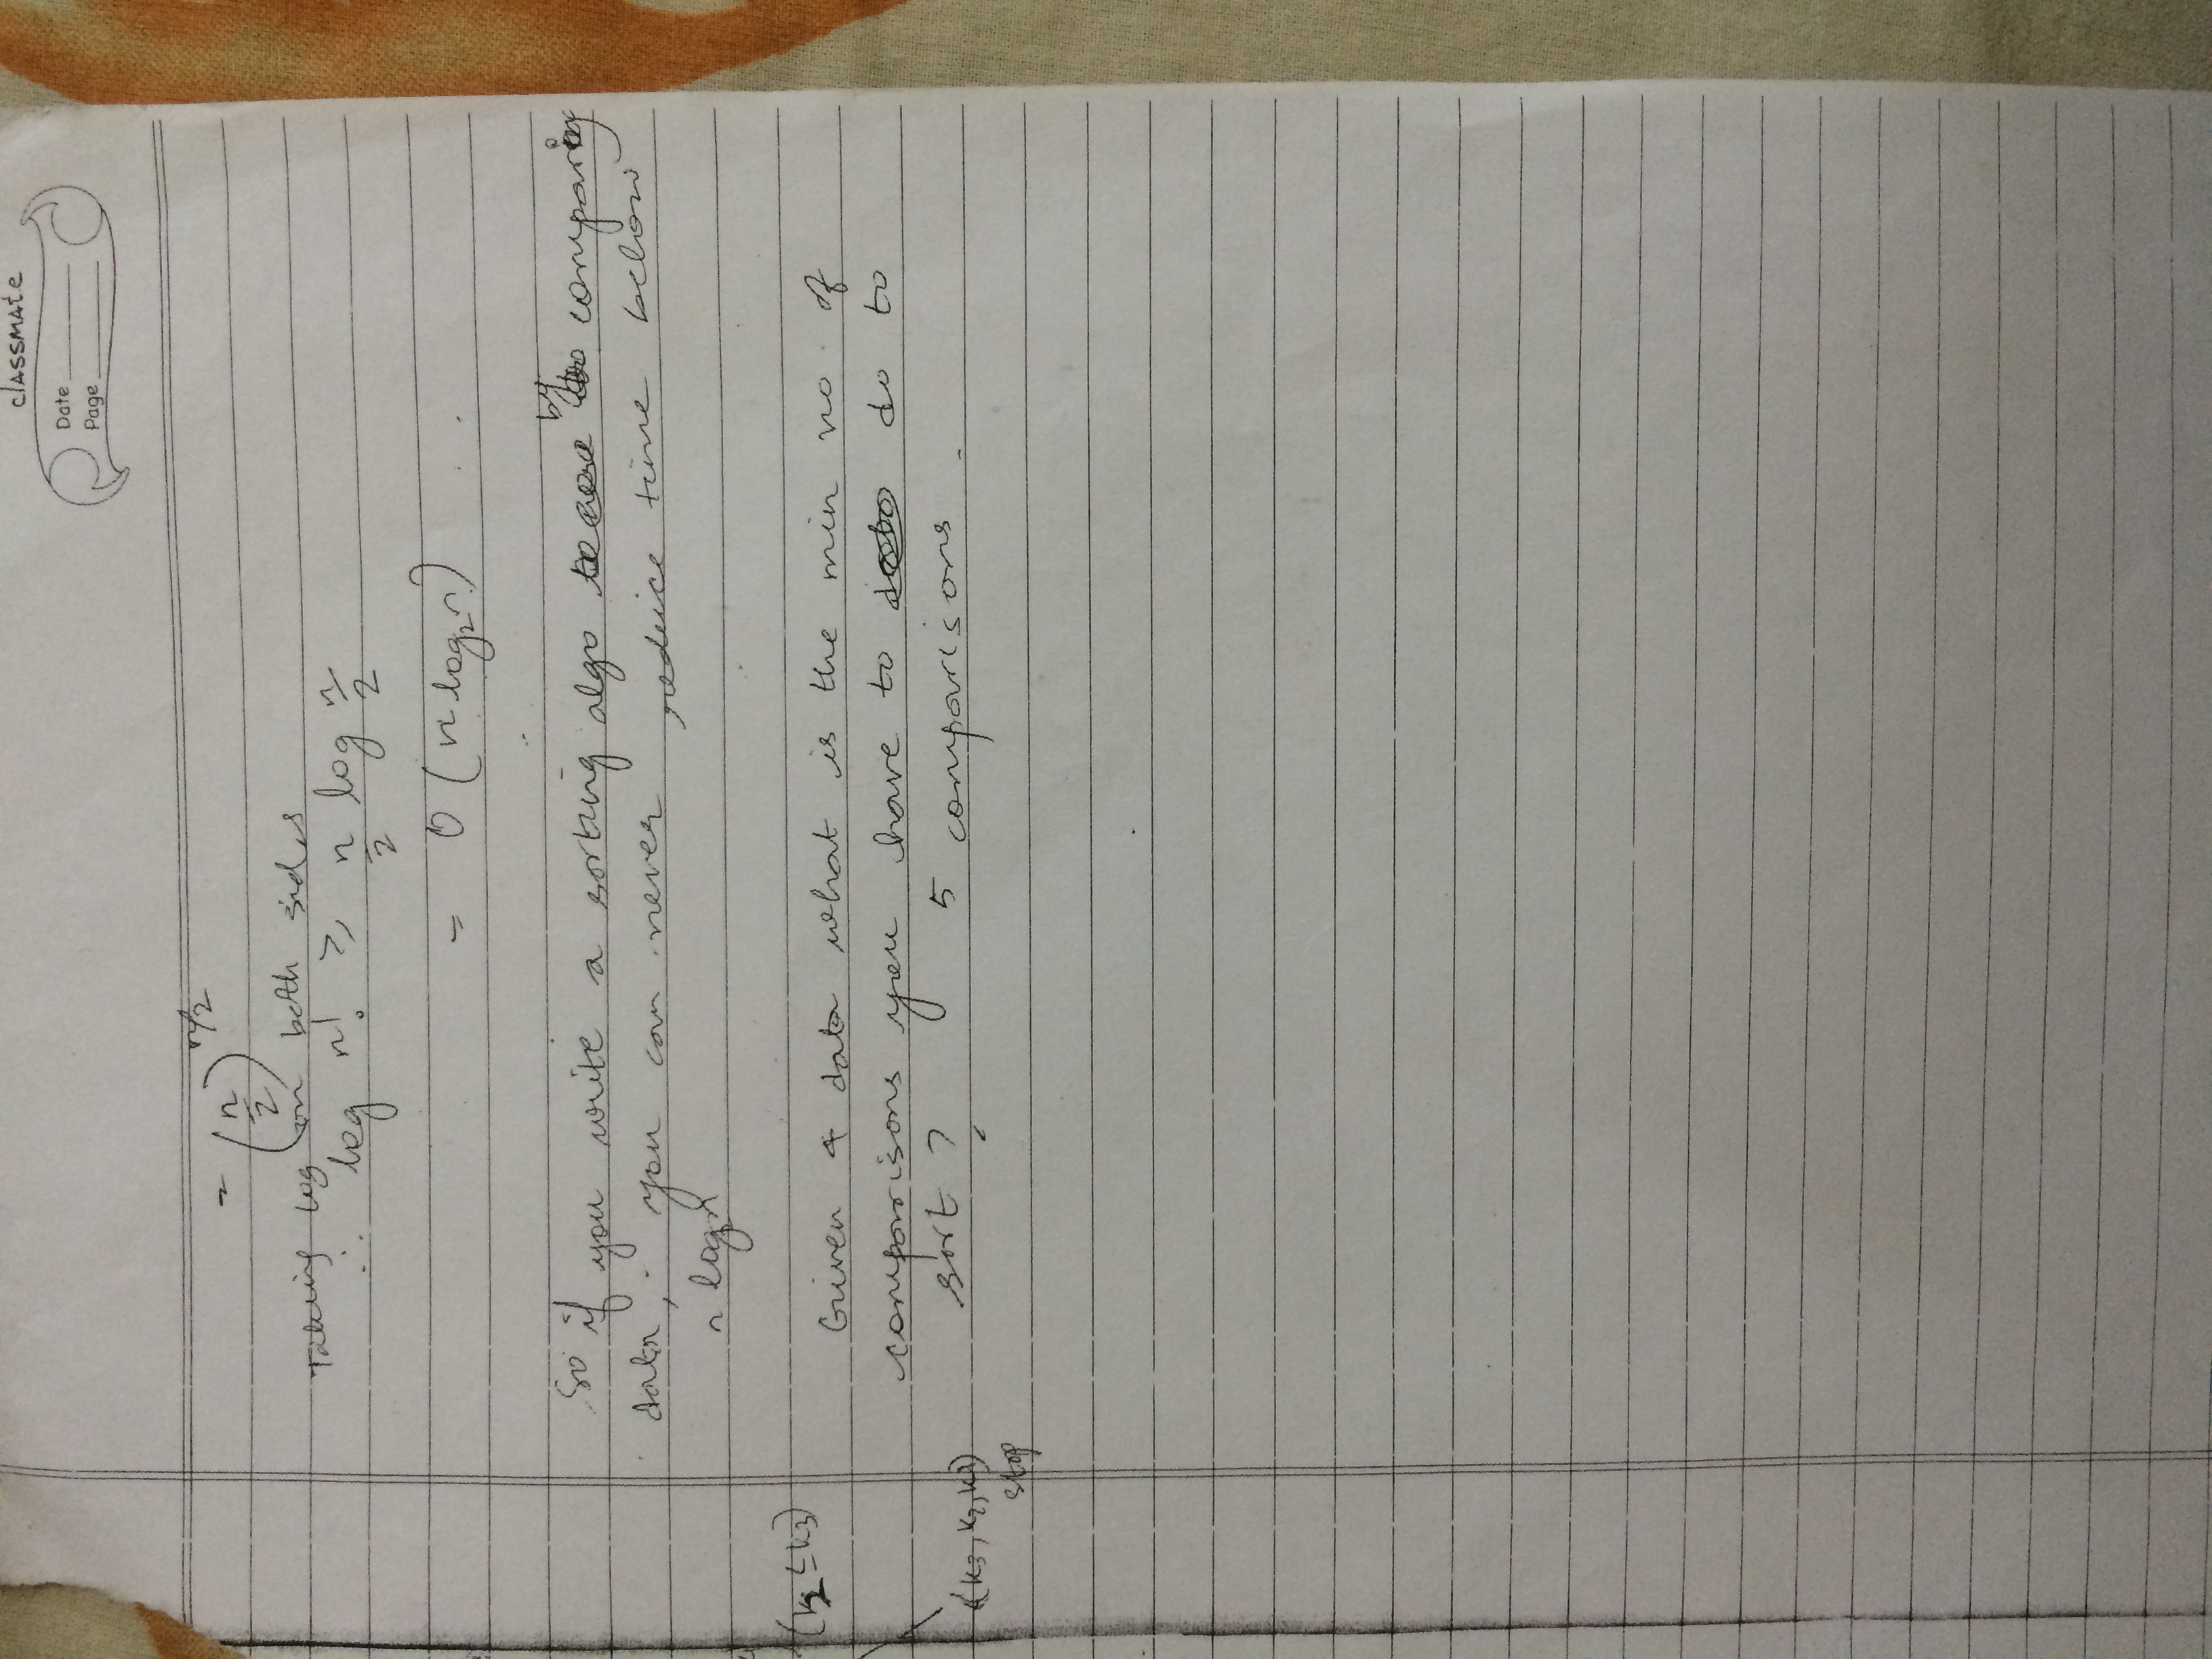 classmate
Date
Page
= (n/2)^n/2
Taking log on both sides
∴ log n! ≥ n/2 log n/2
= O (n log₂n)
So if you write a sorting algo by comparing
data, you can never reduce time below
n log₂n
(k2 ≤ k3)
Given 4 data what is the min no. of
comparisons you have to do to
sort ? 5 comparisons.
(k3, k2, k1)
stop